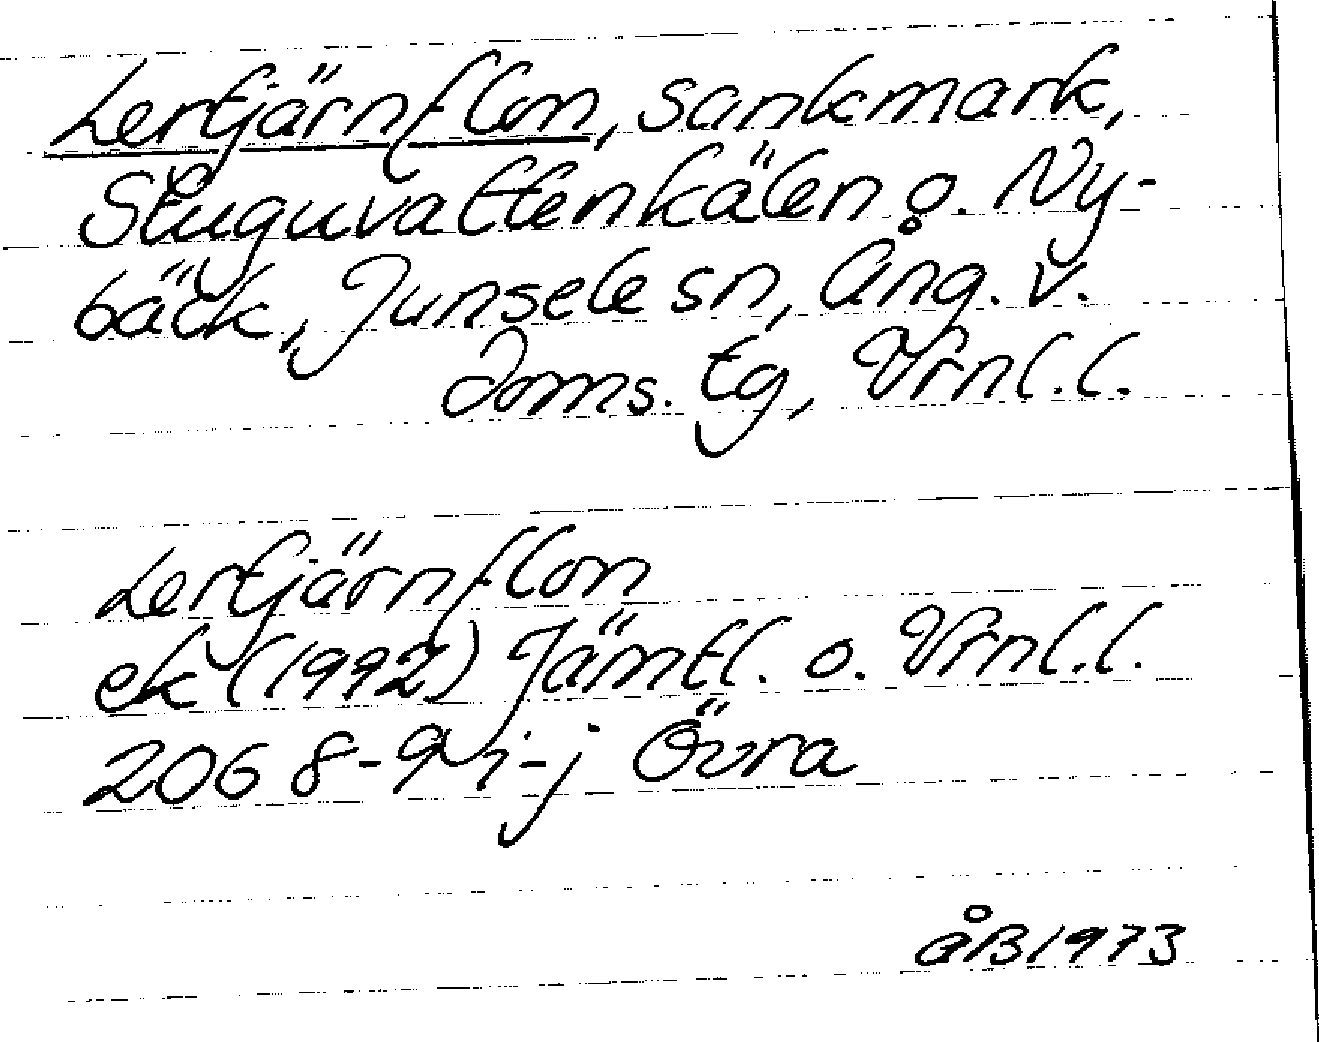 Lertjärnflon, sankmark,
Stuguvattenkälen o. Ny-
bäck, Junsele sn, Ång. v.
doms. tg, Vrnl.l.
Lertjärnflon
ek (1992) Jämtl. o. Vrnl.l.
206 8-9 i-j Övra
ÅB 1973